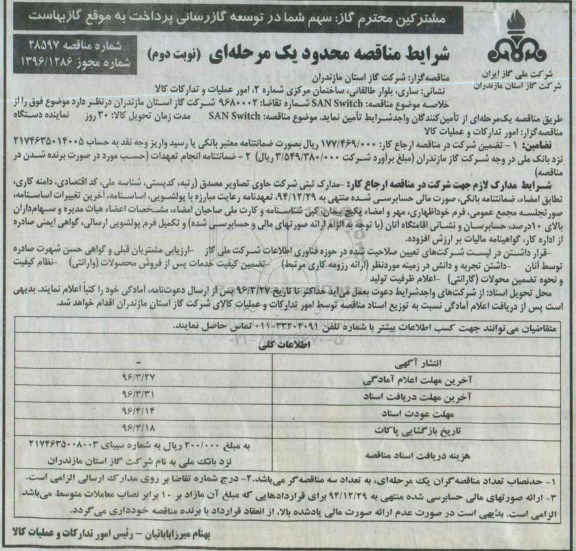 مشترکین محترم گاز: سهم شما در توسعه گازرسانی پرداخت به موقع گازبهاست
شماره مناقصه ۲۸۵۹۷
شماره مجوز ۱۳۹۶/۱۲۸۶
شرایط مناقصه محدود یک مرحله‌ای (نوبت دوم)
شرکت ملی گاز ایران
شرکت گاز استان مازندران
مناقصه‌گزار: شرکت گاز استان مازندران
نشانی: ساری، بلوار طالقانی، ساختمان مرکزی شماره ۲، امور عملیات و تدارکات کالا
خلاصه موضوع مناقصه: SAN Switch شماره تقاضا: ۹۶۸۰۰۰۲ شرکت گاز استان مازندران درنظر دارد موضوع فوق را از
طریق مناقصه یک‌مرحله‌ای از تأمین‌کنندگان واجدشرایط تأمین نماید. موضوع مناقصه: SAN Switch مدت زمان تحویل کالا: ۳۰ روز نماینده دستگاه
مناقصه‌گزار: امور تدارکات و عملیات کالا
تضامین: ۱- تضمین شرکت در مناقصه ارجاع کار: ۱۷۷/۴۶۹/۰۰۰ ریال بصورت ضمانتنامه معتبر بانکی یا رسید واریز وجه نقد به حساب ۲۱۷۴۶۳۵۰۱۴۰۰۵
نزد بانک ملی در وجه شرکت گاز مازندران (مبلغ برآورد شرکت ۳/۵۴۹/۳۸۰/۰۰۰ ریال) ۲- ضمانتنامه انجام تعهدات (حسب مورد در صورت برنده شدن در
مناقصه)
شرایط مدارک لازم جهت شرکت در مناقصه ارجاع کار: -مدارک ثبتی شرکت حاوی تصاویر مصدق (رتبه، کدپستی، شناسه ملی، کد اقتصادی، دامنه کاری،
تطابق امضاء، ضمانتنامه بانکی، صورت مالی حسابرسی شده منتهی به ۹۴/۱۲/۲۹، تعهدنامه رعایت مبارزه با پولشویی، اساسنامه، آخرین تغییرات اساسنامه،
صورتجلسه مجمع عمومی، فرم خوداظهاری، مهر و امضاء پکیج پیمان، کپی شناسنامه و کارت ملی صاحبان امضاء، مشخصات اعضاء هیات مدیره و سهامداران
بالای ۱۰درصد، حسابرسان و نشانی اقامتگاه آنان (با توجه به الزام ارائه صورتهای مالی و حسابرسی شده) و تکمیل فرم پولشویی ارسالی، گواهی ایمنی صادره
از اداره کار، گواهینامه مالیات بر ارزش افزوده.
-قرار داشتن در لیست شرکت‌های تعیین صلاحیت شده در حوزه فناوری اطلاعات شرکت ملی گاز -ارزیابی مشتریان قبلی و گواهی حسن شهرت صادره
توسط آنان -داشتن تجربه و دانش در زمینه موردنظر (ارائه رزومه کاری مرتبط) -تضمین کیفیت خدمات پس از فروش محصولات (وارانتی) -نظام کیفیت
و نحوه تضمین محولات (گارانتی) -اعلام ظرفیت تولید
محل تحویل اسناد: از شرکت‌های واجدشرایط دعوت بعمل می‌آید حداکثر تا تاریخ ۹۶/۳/۲۷ پس از ارسال دعوت‌نامه، آمادگی خود را کتباً اعلام نمایند. بدیهی
است پس از دریافت اعلام آمادگی نسبت به توزیع اسناد مناقصه توسط امور تدارکات و عملیات کالای شرکت گاز استان مازندران اقدام خواهد شد.
متقاضیان می‌توانند جهت کسب اطلاعات بیشتر با شماره تلفن ۳۳۲۰۴۰۹۱-۰۱۱ تماس حاصل نمایند.
اطلاعات کلی
انتشار آگهی -
آخرین مهلت اعلام آمادگی ۹۶/۳/۲۷
آخرین مهلت دریافت اسناد ۹۶/۳/۳۱
مهلت عودت اسناد ۹۶/۴/۱۴
تاریخ بازگشایی پاکات ۹۶/۴/۱۸
هزینه دریافت اسناد مناقصه به مبلغ ۲۰۰/۰۰۰ ریال به شماره سیبای ۲۱۷۴۶۳۵۰۰۸۰۰۳
نزد بانک ملی به نام شرکت گاز استان مازندران
۱- حدنصاب تعداد مناقصه‌گران یک مرحله‌ای، به تعداد سه مناقصه‌گر می‌باشد. ۲- درج شماره تقاضا بر روی مدارک ارسالی الزامی است.
۳- ارائه صورتهای مالی حسابرسی شده منتهی به ۹۴/۱۲/۲۹ برای قراردادهایی که مبلغ آن مازاد بر ۱۰ برابر نصاب معاملات متوسط می‌باشد
الزامی است. بدیهی است در صورت عدم ارائه صورت مالی یادشده بالا، از انعقاد قرارداد با برنده مناقصه خودداری می‌گردد.
بهنام میرزابابائیان – رئیس امور تدارکات و عملیات کالا